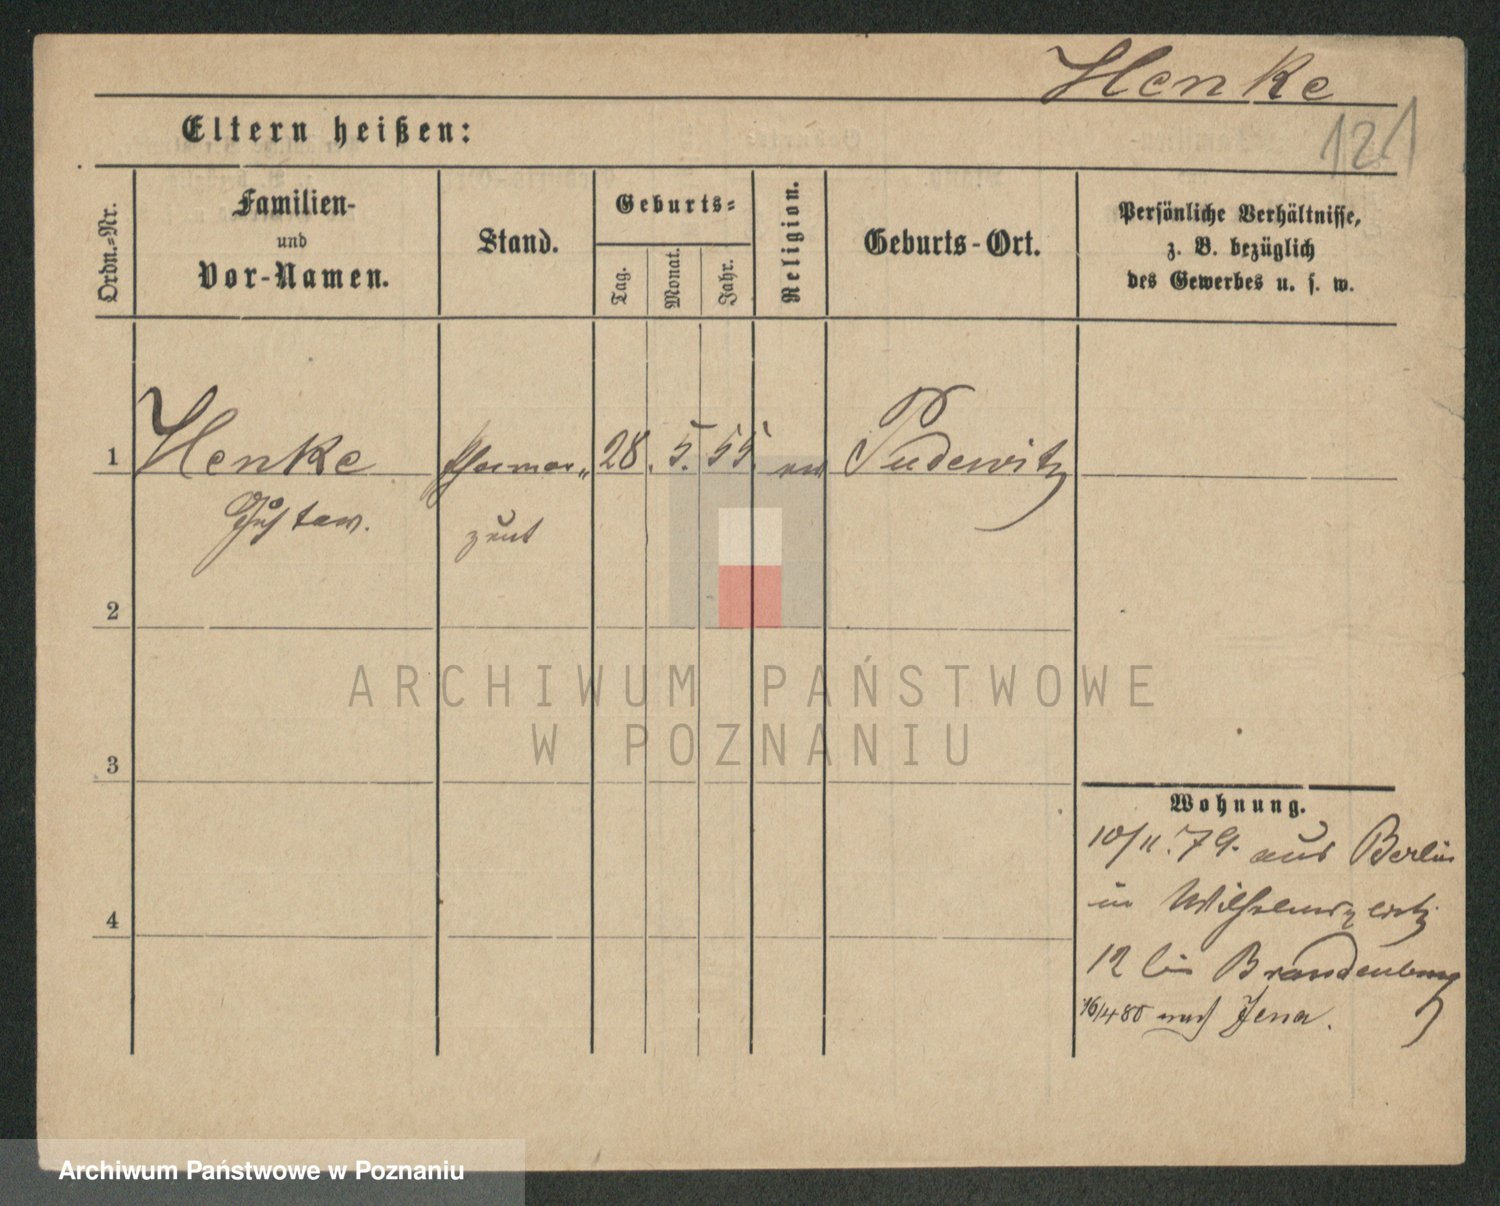 Henke
121
Eltern heißen:
Ordn.-Nr.
Familien-
und
Vor-Namen.
Stand.
Geburts-
Tag.
Monat.
Jahr.
Religion.
Geburts-Ort.
Persönliche Verhältnisse,
z. B. bezüglich
des Gewerbes u. s. w.
1 Henke Pharma- 28. 5. 55. ev Pudewitz
Gustav. zeut
2
3
4
Wohnung.
10/11. 79. aus Berlin
in Wilhelmsplatz
12 bei Brandenburg
16/4 80 nach Jena.
ARCHIWUM PAŃSTWOWE
W POZNANIU
Archiwum Państwowe w Poznaniu